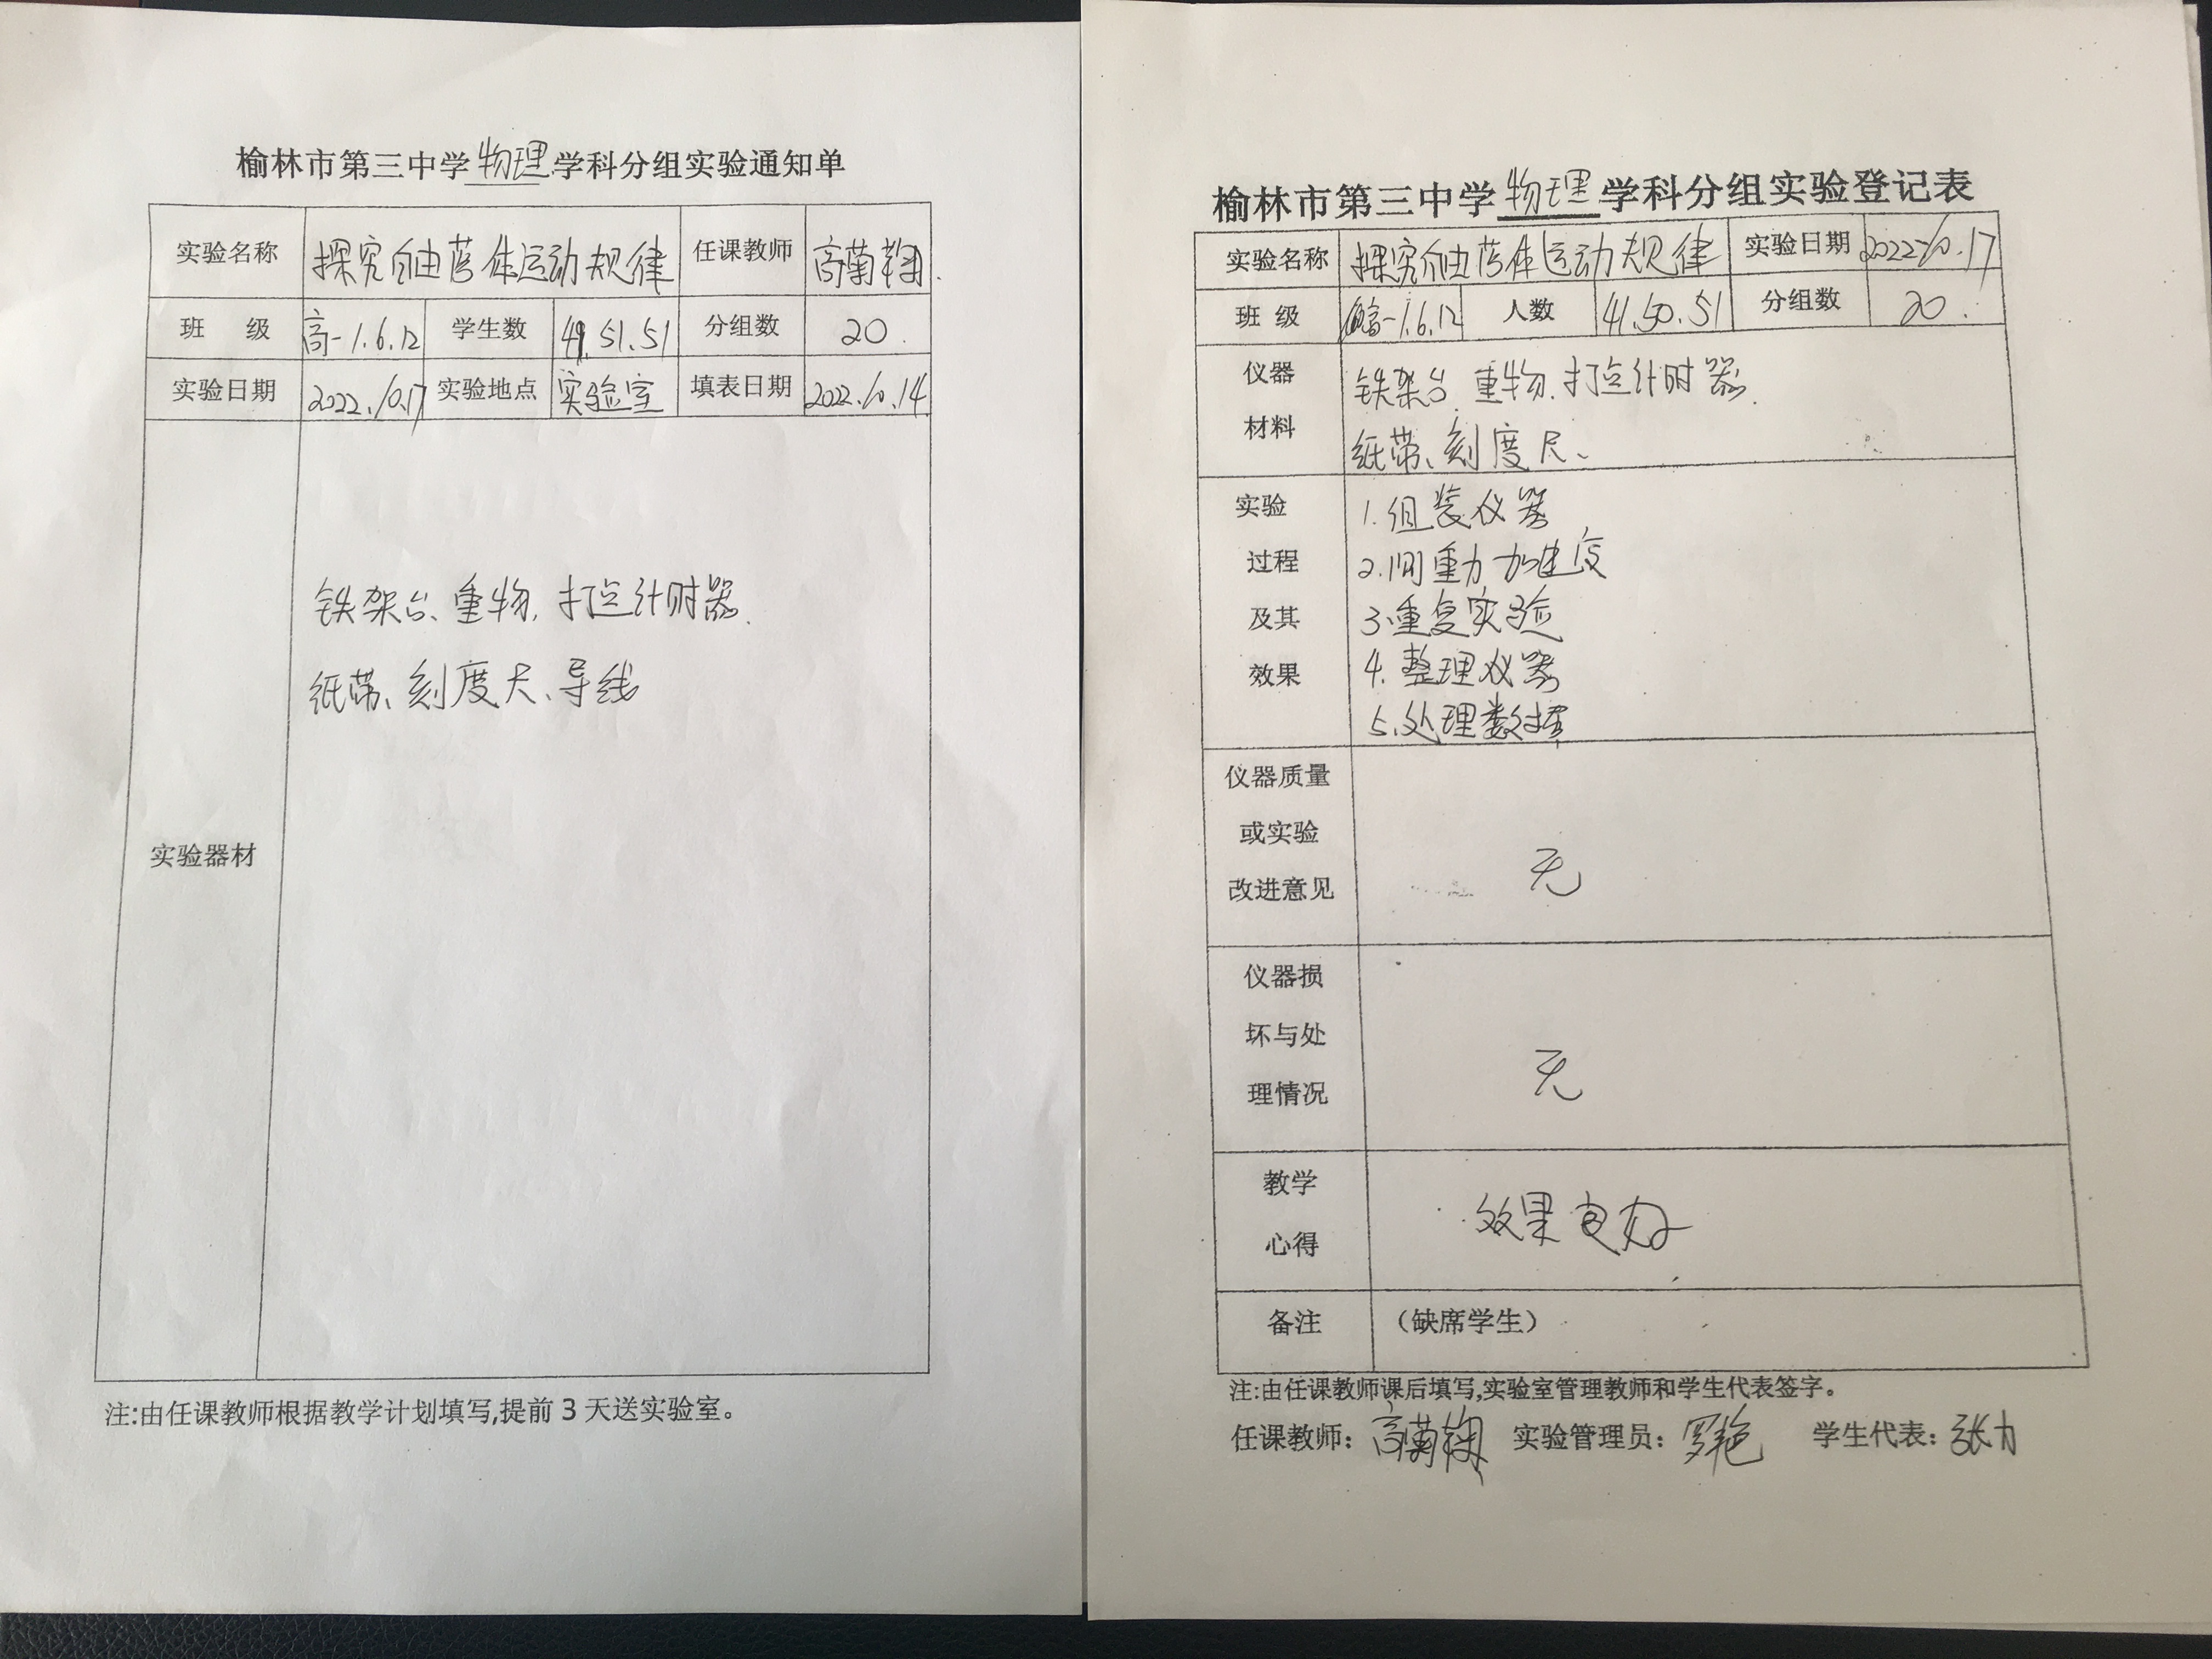 榆林市第三中学物理学科分组实验通知单
实验名称 探究自由落体运动规律 任课教师 高菊鞠
班 级 高一1.6.12 学生数 49.51.51 分组数 20.
实验日期 2022.10.17 实验地点 实验室 填表日期 2022.10.14
实验器材
铁架台、重物、打点计时器.
纸带、刻度尺、导线
注:由任课教师根据教学计划填写,提前3天送实验室。
榆林市第三中学物理学科分组实验登记表
实验名称 探究自由落体运动规律 实验日期 2022.10.17
班 级 高一1.6.12 人数 41.50.51 分组数 20.
仪器
材料
铁架台 重物.打点计时器.
纸带、刻度尺、
实验
过程
及其
效果
1.组装仪器
2.测重力加速度
3.重复实验
4.整理仪器
5.处理数据
仪器质量
或实验
改进意见
无
仪器损
坏与处
理情况
无
教学
心得
效果良好
备注 (缺席学生)
注:由任课教师课后填写,实验室管理教师和学生代表签字。
任课教师: 高菊鞠 实验管理员: 罗艳 学生代表: 张力